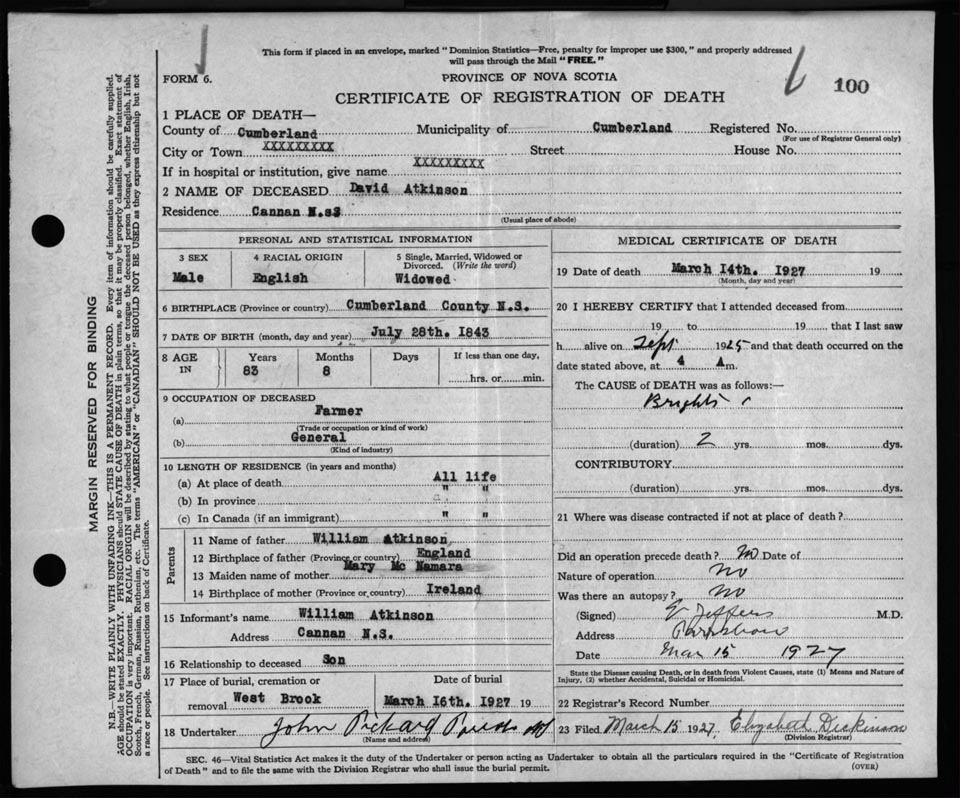 This form if placed in an envelope, marked "Dominion Statistics—Free, penalty for improper use $300," and properly addressed
will pass through the Mail "FREE."
FORM 6.
PROVINCE OF NOVA SCOTIA
100
CERTIFICATE OF REGISTRATION OF DEATH
1 PLACE OF DEATH—
County of Cumberland Municipality of Cumberland Registered No.
(For use of Registrar General only)
City or Town XXXXXXXXX Street House No.
If in hospital or institution, give name XXXXXXXXX
2 NAME OF DECEASED David Atkinson
Residence Cannan N.s
(Usual place of abode)
PERSONAL AND STATISTICAL INFORMATION
3 SEX 4 RACIAL ORIGIN 5 Single, Married, Widowed or
Divorced. (Write the word)
Male English Widowed
6 BIRTHPLACE (Province or country) Cumberland County N.S.
7 DATE OF BIRTH (month, day and year) July 28th. 1843
8 AGE IN Years Months Days If less than one day,
83 8 hrs. or min.
9 OCCUPATION OF DECEASED
(a) Farmer
(Trade or occupation or kind of work)
(b) General
(Kind of industry)
10 LENGTH OF RESIDENCE (in years and months)
(a) At place of death All life
(b) In province " "
(c) In Canada (if an immigrant) " "
Parents
11 Name of father William Atkinson
12 Birthplace of father (Province or country) England
13 Maiden name of mother Mary Mc Namara
14 Birthplace of mother (Province or country) Ireland
15 Informant's name William Atkinson
Address Cannan N.S.
16 Relationship to deceased Son
17 Place of burial, cremation or Date of burial
removal West Brook March 16th. 1927 19
18 Undertaker John Pickard
(Name and address)
MEDICAL CERTIFICATE OF DEATH
19 Date of death March 14th. 1927 19
(Month, day and year)
20 I HEREBY CERTIFY that I attended deceased from
19 to 19 , that I last saw
h alive on Sept 1925 and that death occurred on the
date stated above, at 4 A m.
The CAUSE of DEATH was as follows:—
Brights
(duration) 2 yrs. mos. dys.
CONTRIBUTORY
(duration) yrs. mos. dys.
21 Where was disease contracted if not at place of death?
Did an operation precede death? No Date of
Nature of operation No
Was there an autopsy? No
(Signed) Jeffers M.D.
Address Parrsboro
Date Mar 15 1927
State the Disease causing Death, or in death from Violent Causes, state (1) Means and Nature of
Injury, (2) whether Accidental, Suicidal or Homicidal.
22 Registrar's Record Number
23 Filed March 15 1927. Elizabeth Dickinson
(Division Registrar)
SEC. 46—Vital Statistics Act makes it the duty of the Undertaker or person acting as Undertaker to obtain all the particulars required in the "Certificate of Registration
of Death" and to file the same with the Division Registrar who shall issue the burial permit.
(OVER)
MARGIN RESERVED FOR BINDING
N.B.—WRITE PLAINLY WITH UNFADING INK—THIS IS A PERMANENT RECORD. Every item of information should be carefully supplied.
AGE should be stated EXACTLY. PHYSICIANS should STATE CAUSE OF DEATH in plain terms, so that it may be properly classified. Exact statement of
OCCUPATION is very important. RACIAL ORIGIN will be described by stating to what people or tongue the deceased person belonged, whether English, Irish,
Scotch, French, German, Russian, Ruthenian, etc. The terms "AMERICAN" or "CANADIAN" SHOULD NOT BE USED as they express citizenship but not
a race or people. See instructions on back of Certificate.